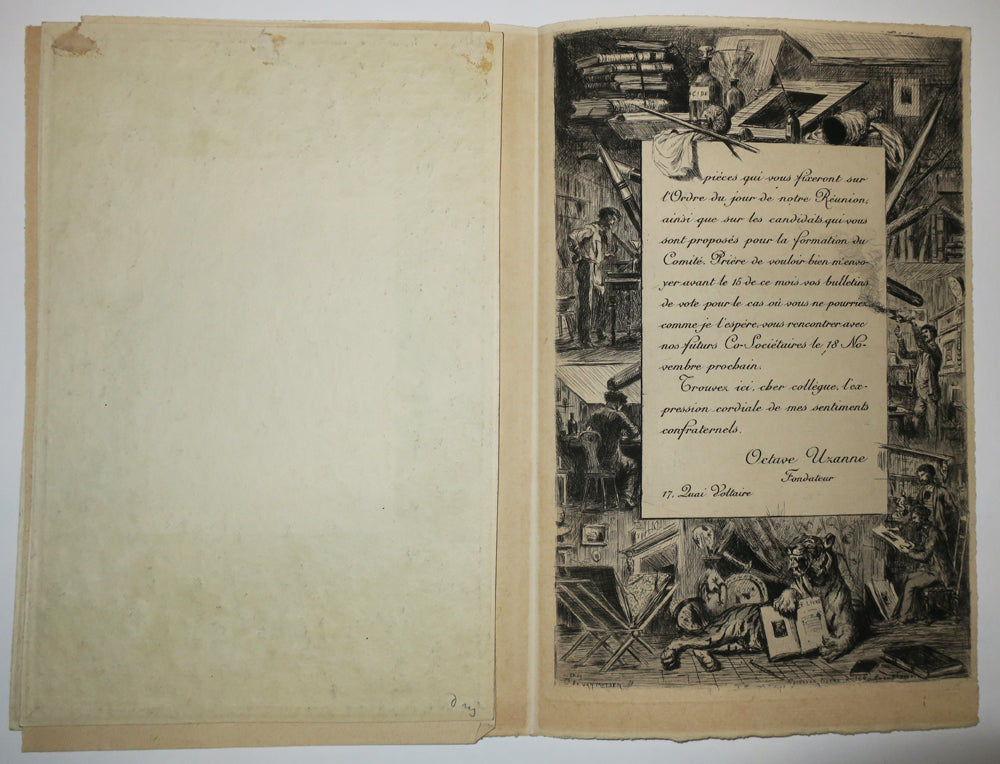 pièces qui vous fixeront sur
l'Ordre du jour de notre Réunion,
ainsi que sur les candidats qui vous
sont proposés pour la formation du
Comité. Prière de vouloir bien m'envo-
yer avant le 15 de ce mois vos bulletins
de vote pour le cas où vous ne pourriez
comme je l'espère, vous rencontrer avec
nos futurs Co-Sociétaires le 18 No-
vembre prochain.
Trouvez ici, cher collègue, l'ex-
pression cordiale de mes sentiments
confraternels.
Octave Uzanne
Fondateur
17, Quai Voltaire